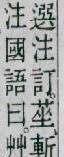 選注訂茔斬
注國語曰艸